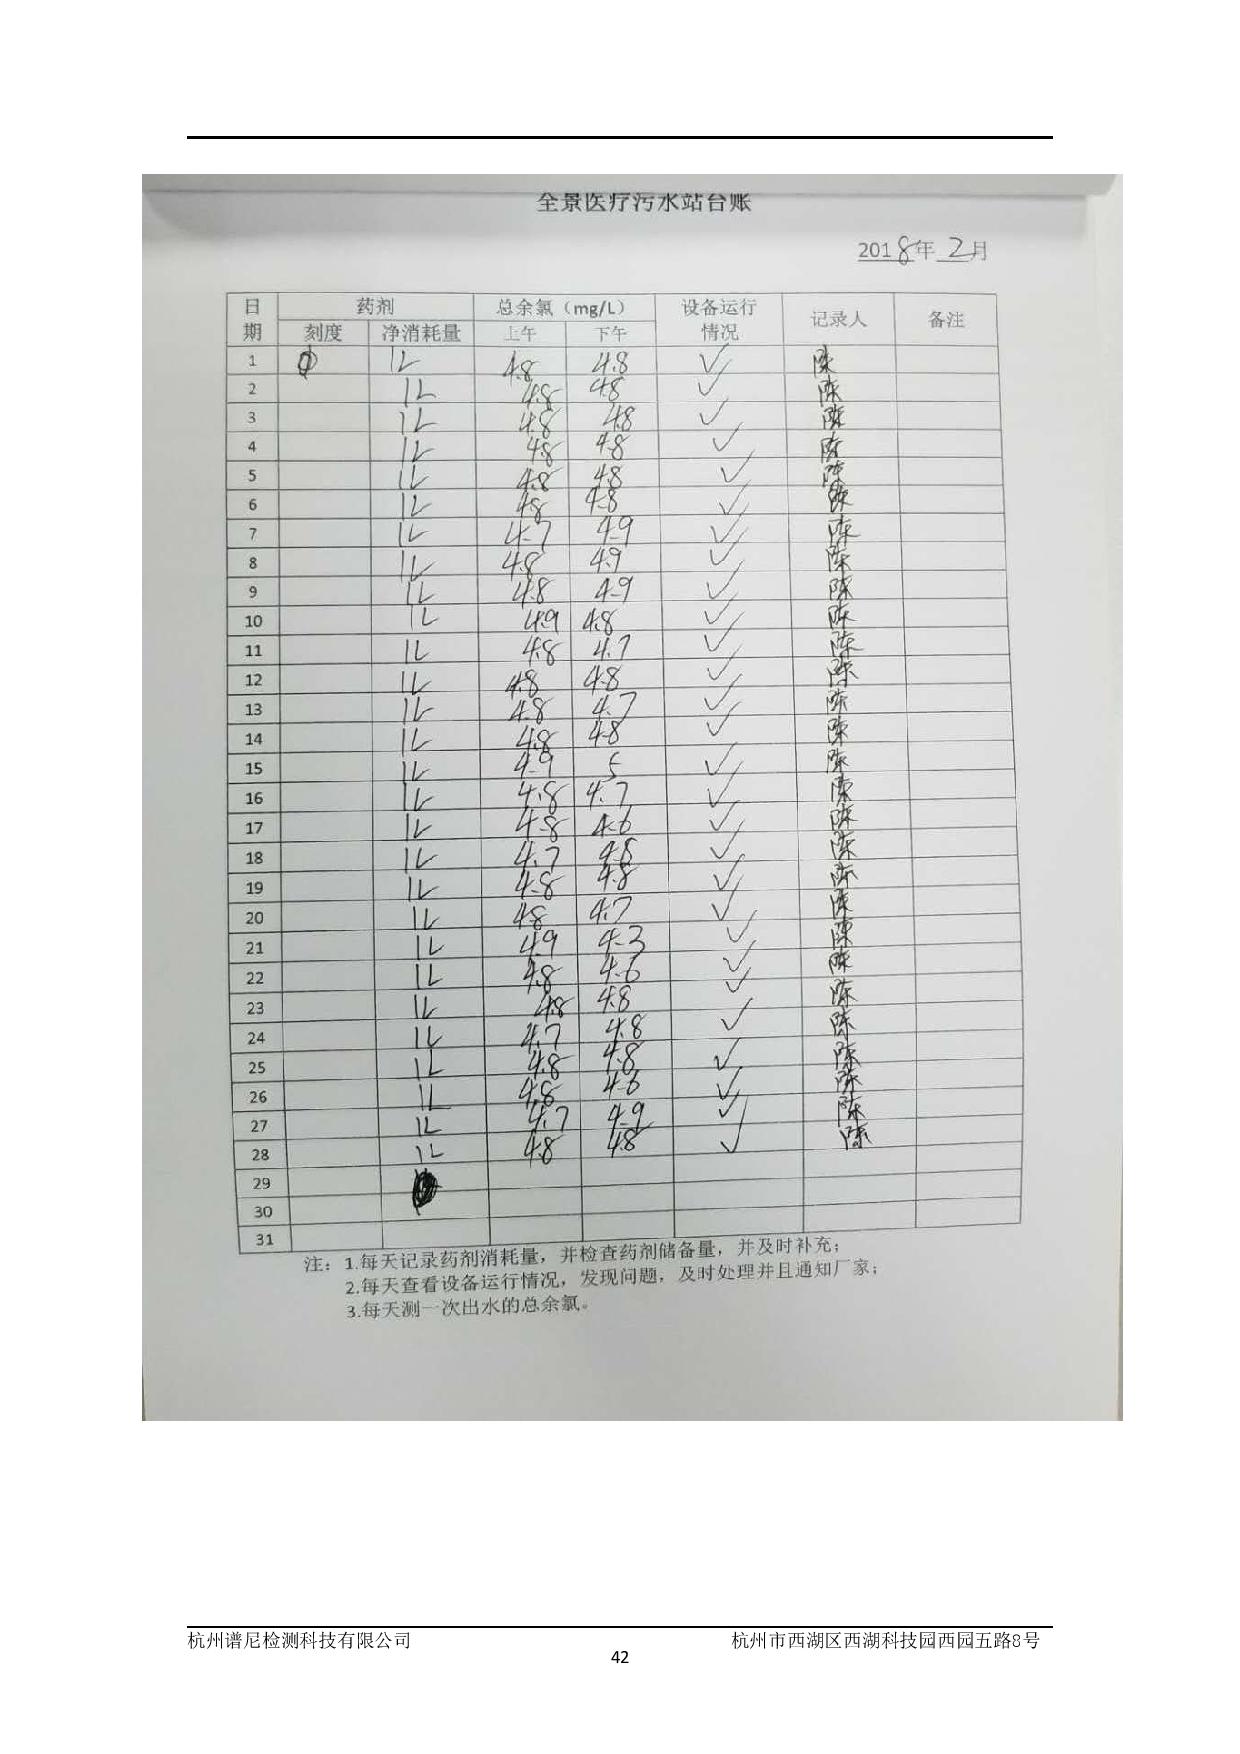 全景医疗污水站台账
2018年 2月
日期 药剂 总余氯（mg/L） 设备运行情况 记录人 备注
刻度 净消耗量 上午 下午
1 1L 4.8 4.8 ✓ 陈
2 1L 4.8 4.8 ✓ 陈
3 1L 4.8 4.8 ✓ 陈
4 1L 4.8 4.8 ✓ 陈
5 1L 4.8 4.8 ✓ 陈
6 1L 4.8 4.8 ✓ 陈
7 1L 4.7 4.9 ✓ 陈
8 1L 4.8 4.9 ✓ 陈
9 1L 4.8 4.9 ✓ 陈
10 1L 4.9 4.8 ✓ 陈
11 1L 4.8 4.7 ✓ 陈
12 1L 4.8 4.8 ✓ 陈
13 1L 4.8 4.7 ✓ 陈
14 1L 4.8 4.8 ✓ 陈
15 1L 4.9 5 ✓ 陈
16 1L 4.8 4.7 ✓ 陈
17 1L 4.8 4.6 ✓ 陈
18 1L 4.7 4.8 ✓ 陈
19 1L 4.8 4.8 ✓ 陈
20 1L 4.8 4.7 ✓ 陈
21 1L 4.9 4.3 ✓ 陈
22 1L 4.8 4.6 ✓ 陈
23 1L 4.8 4.8 ✓ 陈
24 1L 4.7 4.8 ✓ 陈
25 1L 4.8 4.8 ✓ 陈
26 1L 4.8 4.6 ✓ 陈
27 1L 4.7 4.9 ✓ 陈
28 1L 4.8 4.8 ✓ 陈
29
30
31
注：1.每天记录药剂消耗量，并检查药剂储备量，并及时补充；
2.每天查看设备运行情况，发现问题，及时处理并且通知厂家；
3.每天测一次出水的总余氯。
杭州谱尼检测科技有限公司 杭州市西湖区西湖科技园西园五路8号
42